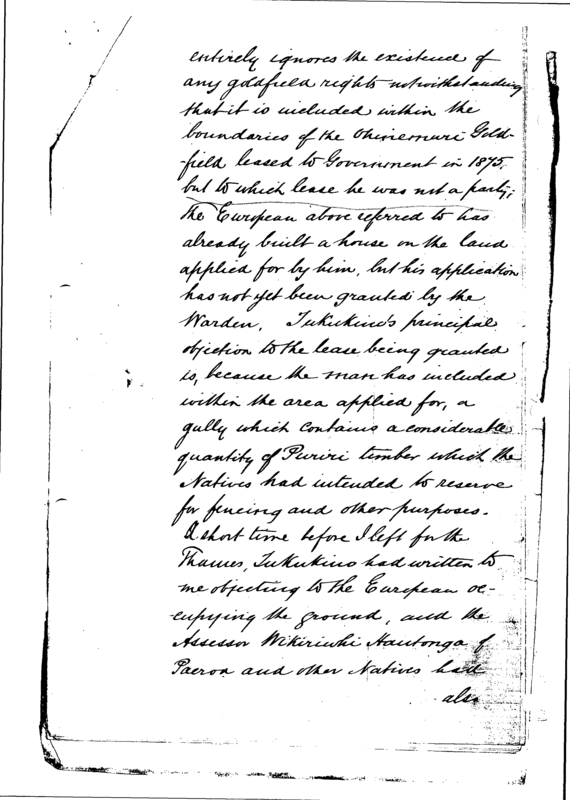 entirely ignores the existence of
any goldfield rights notwithstanding
that it is included within the
boundaries of the Ohinemuri Gold-
-field leased to Government in 1875.
but to which lease he was not a party;
The European above referred to has
already built a house on the land
applied for by him, but his application
has not yet been granted by the
Warden. Tukukino's principal
objection to the lease being granted
is, because the man has included
within the area applied for, a
gully which contains a considerable
quantity of Puriri timber which the
Natives had intended to reserve
for fencing and other purposes.
A short time before I left for the
Thames, Tukukino had written to
me objecting to the European oc-
-cupying the ground, and the
Assessor Wikiriwhi Hautonga of
Paeroa and other Natives had
also